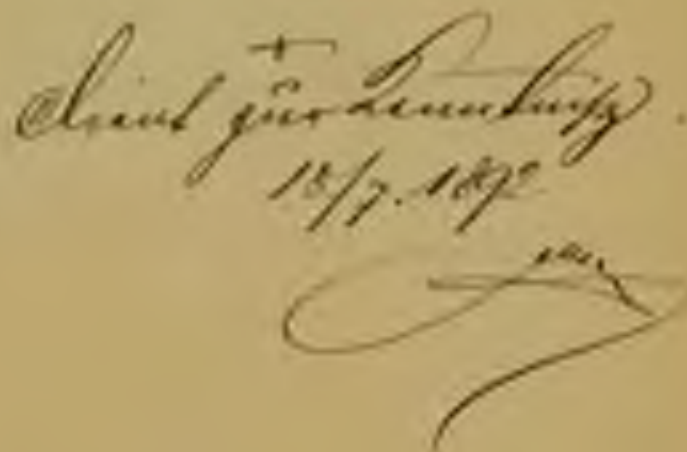 Dient zur Kenntniß.
18/7. 1872